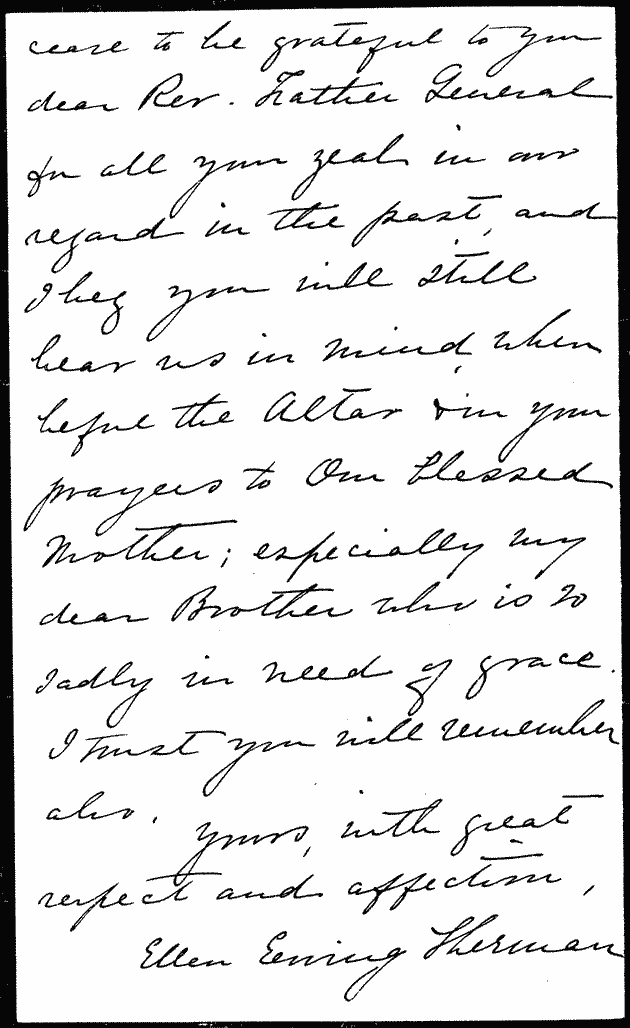 cease to be grateful to you
dear Rev. Father General
for all your zeal in our
regard in the past, and
I beg you will still
bear us in mind, when
before the Altar & in your
prayers to Our Blessed
Mother; especially my
dear Brother who is so
sadly in need of grace.
I trust you will remember
also.
Yours, with great
respect and affection,
Ellen Ewing Sherman